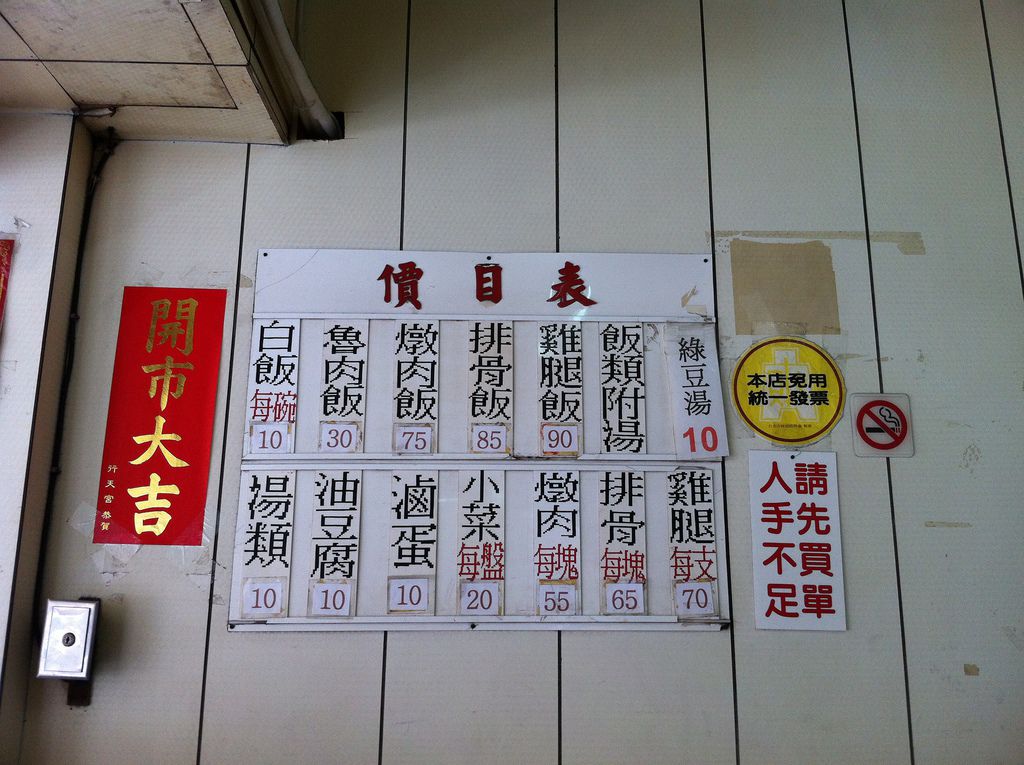 價目表
白飯 每碗 10
魯肉飯 30
燉肉飯 75
排骨飯 85
雞腿飯 90
飯類附湯
綠豆湯 10
湯類 10
油豆腐 10
滷蛋 10
小菜 每盤 20
燉肉 每塊 55
排骨 每塊 65
雞腿 每支 70
開市大吉
行天宮 恭賀
本店免用
統一發票
請先買單
人手不足